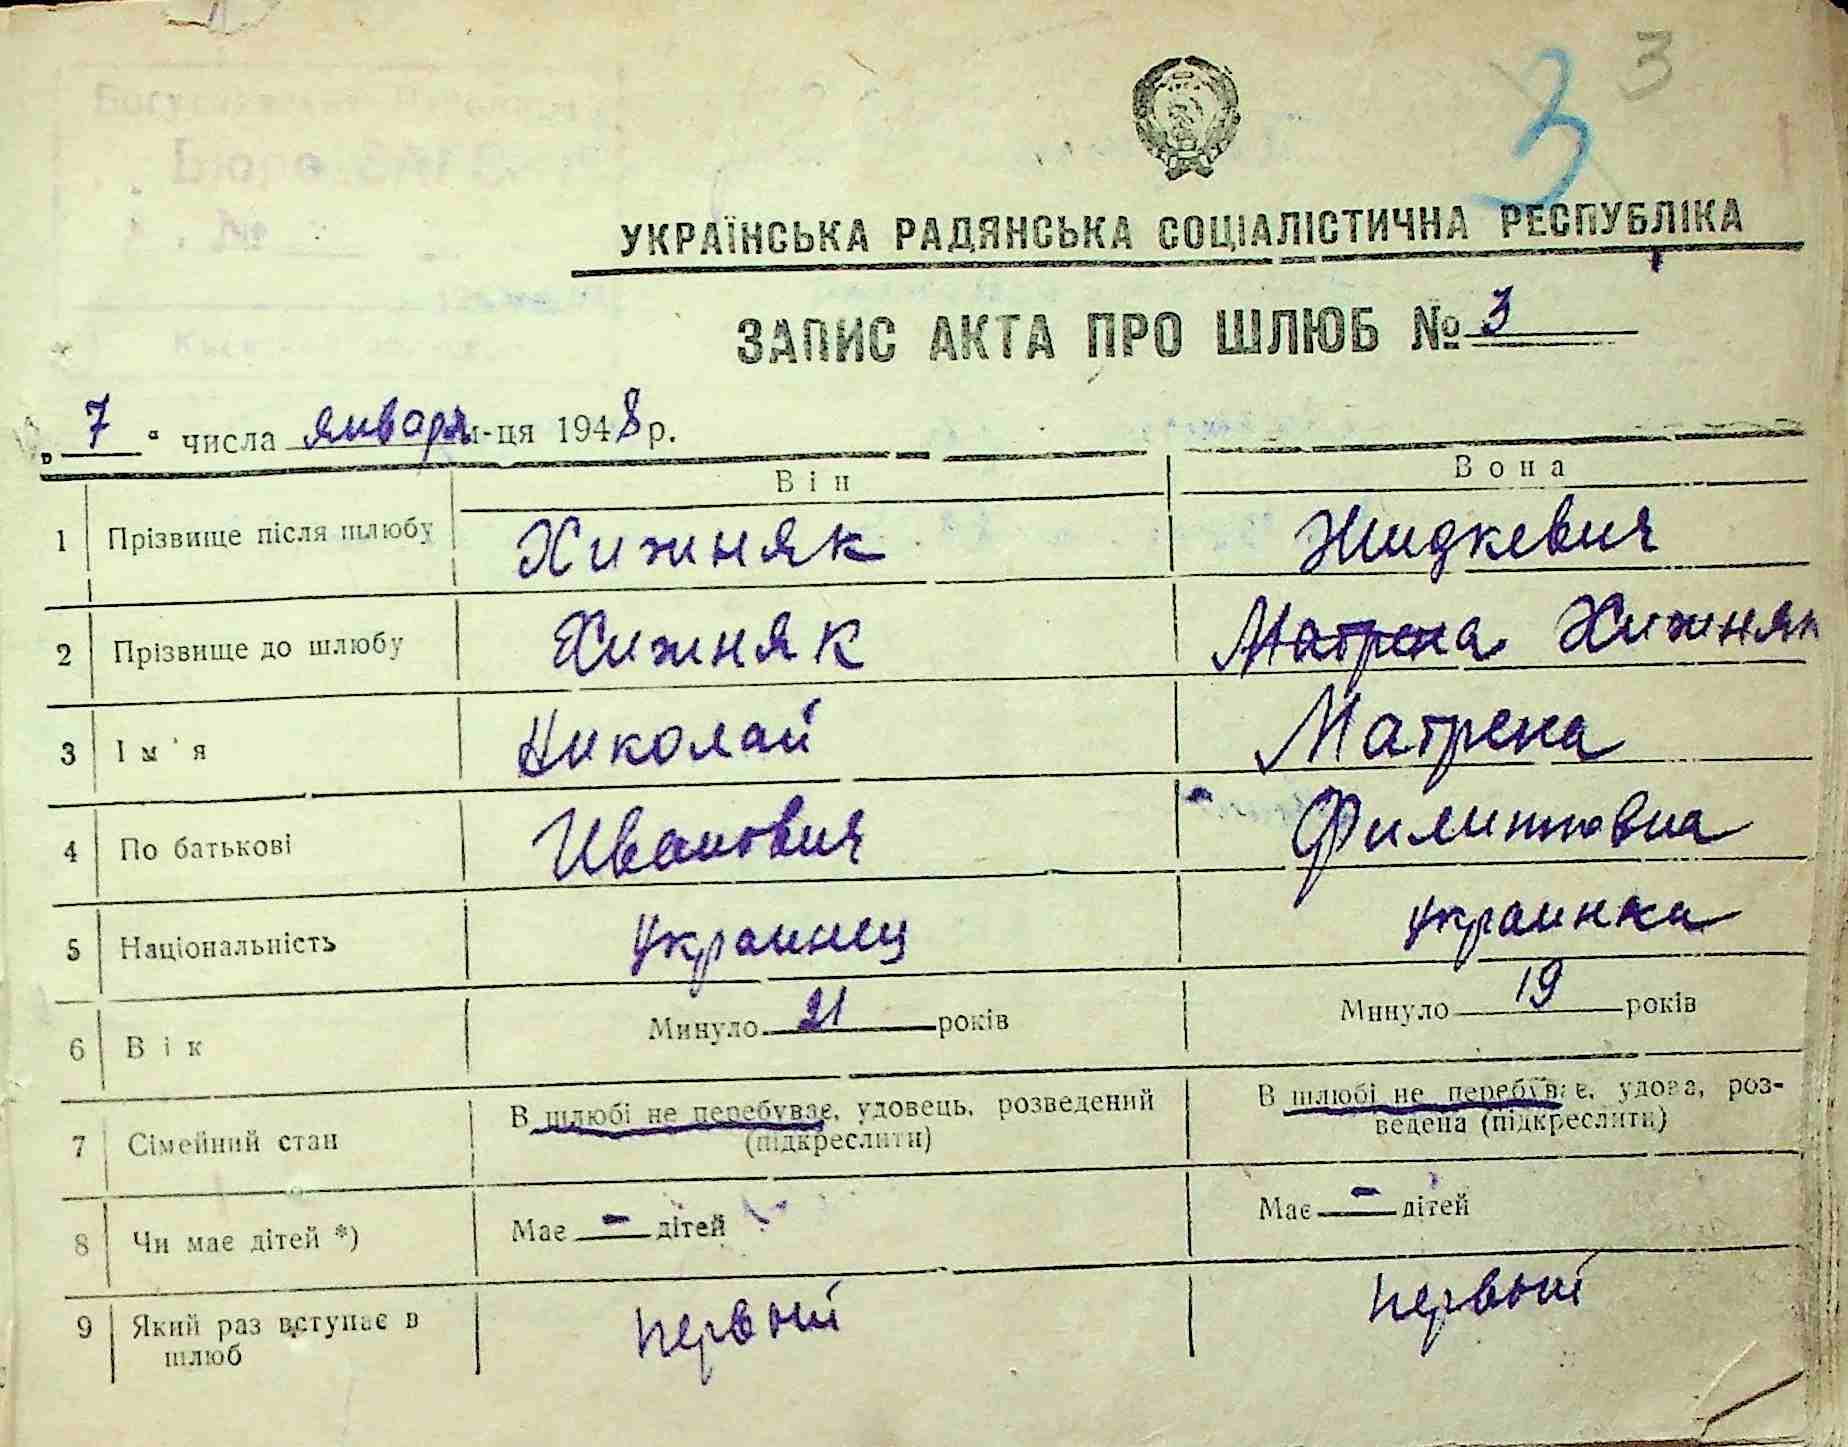 3 3
УКРАЇНСЬКА РАДЯНСЬКА СОЦІАЛІСТИЧНА РЕСПУБЛІКА
ЗАПИС АКТА ПРО ШЛЮБ № 3
„ 7 “ числа января м-ця 1948 р.
Він Вона
1 Прізвище після шлюбу Хижняк Жидкевич
2 Прізвище до шлюбу Хижняк Матрена Хижняк
3 Ім'я Николай Матрена
4 По батькові Иванович Филипповна
5 Національність украинец украинка
6 Вік Минуло 21 років Минуло 19 років
7 Сімейний стан В шлюбі не перебуває, удовець, розведений (підкреслити) В шлюбі не перебуває, удова, роз-
ведена (підкреслити)
8 Чи має дітей *) Має - дітей Має - дітей
9 Який раз вступає в шлюб первый первый